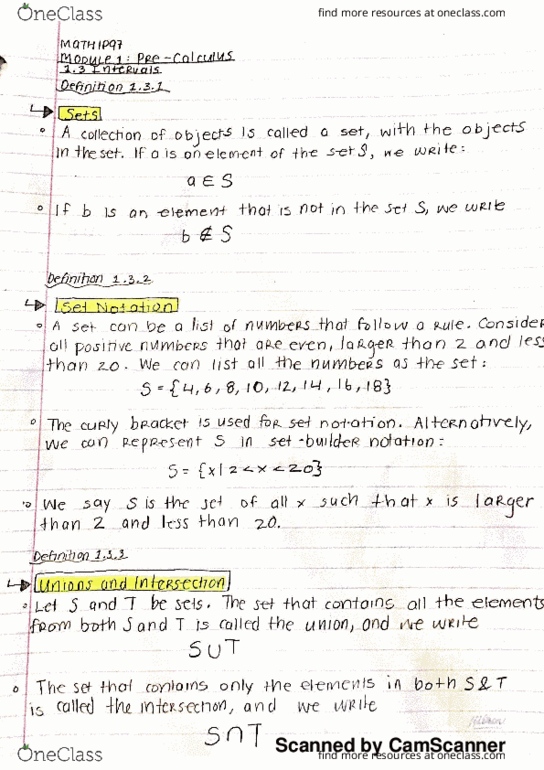 OneClass
find more resources at oneclass.com
MATH1P97
Module 1: Pre-Calculus
1.3 Intervals
Definition 1.3.1
Sets
A collection of objects is called a set, with the objects
in the set. If a is an element of the set S, we write:
a ∈ S
If b is an element that is not in the set S, we write
b ∉ S
Definition 1.3.2
Set Notation
A set can be a list of numbers that follow a rule. Consider
all positive numbers that are even, larger than 2 and less
than 20. We can list all the numbers as the set:
S = {4, 6, 8, 10, 12, 14, 16, 18}
The curly bracket is used for set notation. Alternatively,
we can represent S in set-builder notation:
S = {x | 2 < x < 20}
We say S is the set of all x such that x is larger
than 2 and less than 20.
Definition 1.3.3
Unions and Intersection
Let S and T be sets. The set that contains all the elements
from both S and T is called the union, and we write
S ∪ T
The set that contains only the elements in both S & T
is called the intersection, and we write
S ∩ T
Scanned by CamScanner
OneClass
find more resources at oneclass.com